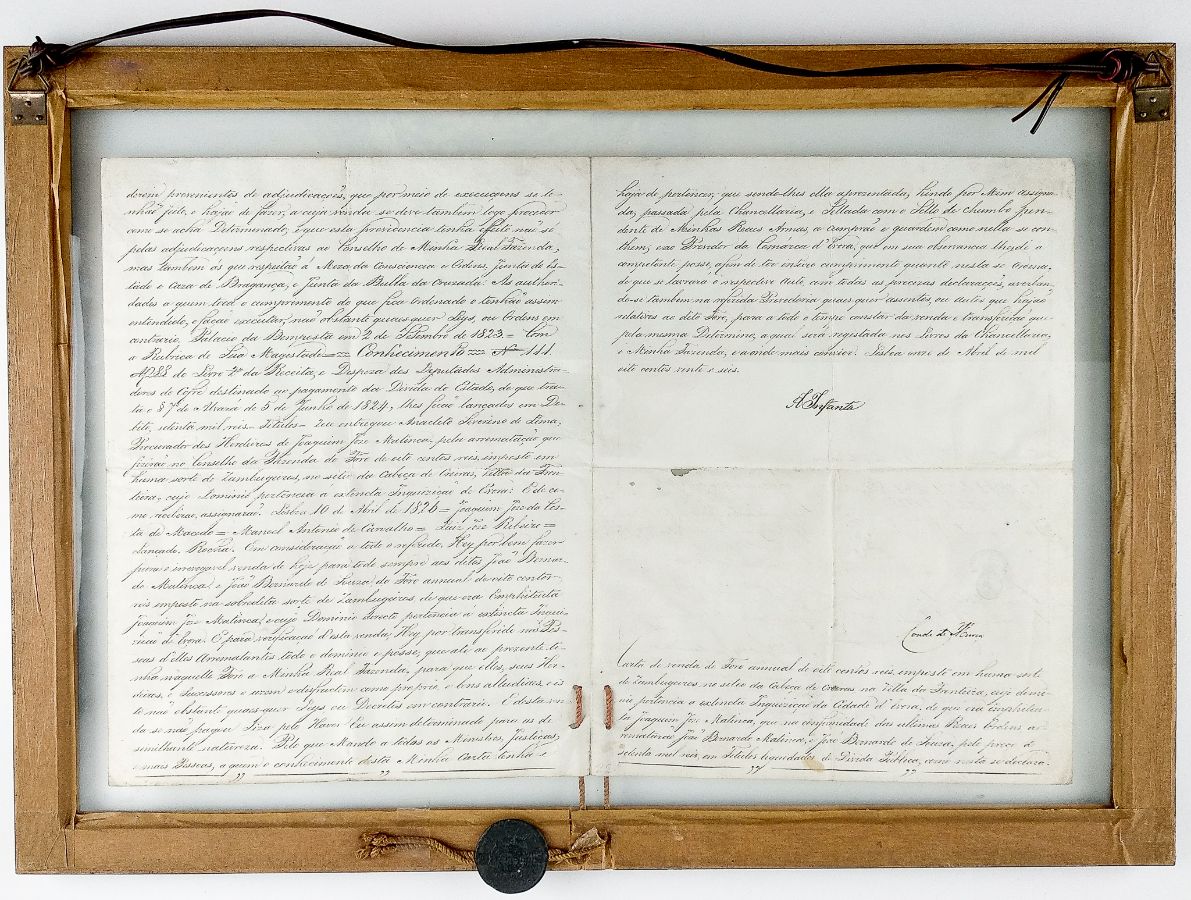 drem provenientes de adjudicações, que por meio de execuçoens se te-
nhaõ feito, e hajaõ de fazer, a cuja venda se deve tambem logo proceder
como se acha Determinado; e que esta providencia tenha effeito naõ só
pelas adjudicaçoens respectivas ao Conselho de Minha Real Fazenda,
mas tambem ás que respeitaõ á Meza da Consciencia e Ordens, Junta do Es-
tado e Caza de Bragança, e Junta da Bulla da Cruzada. As authori-
dades a quem toca o cumprimento do que fica Ordenado o tenhaõ assim
entendido, e façaõ executar, naõ obstante quaesquer Leys, ou Ordens em
contrario. Palacio da Bemposta em 2 de Setembro de 1823 = Com
a Rubrica de Sua Magestade = Conhecimento = Nº 111
de Livro da Receita, e Despeza dos Deputados Administra-
dores do Cofre destinado ao pagamento da Divida do Estado, de que tra-
ta o § 7º do Alvará de 5 de Junho de 1824, lhes ficaõ lançados em De-
bito, setenta mil reis Titulos = que entregou Anacleto Severino de Lima,
Procurador dos Herdeiros de Joaquim Joze Matinca, pela arremataçaõ que
fizeraõ no Conselho da Fazenda do Fôro de oito centos reis, imposto em
huma sorte de Zambugeiros, no sitio da Cabeça de Oueiras, Villa da Fron-
teira, cujo Dominio pertencia a extincta Inquiziçaõ de Evora: E de co-
mo receberaõ, assignaraõ. Lisboa 10 de Abril de 1826 = Joaquim Joze da Cos-
ta de Macedo = Manoel Antonio de Carvalho = Luiz Joze Ribeiro =
Lançado. Rocha. Em consideraçaõ a todo o referido, Hey por bem fazer
pura e irrevogavel venda de hoje para todo sempre aos ditos Joaõ Bernar-
do Matinca, e Joaõ Bernardo de Souza, do Fôro annual de oito centos
reis imposto na sobredita sorte de Zambugeiros, de que era Emphiteuta
Joaquim Joze Matinca, e cujo Dominio directo pertencia á extincta Inqui-
ziçaõ de Evora. E para verificaçaõ d'esta venda, Hey por transferido nas Pes-
soas d'elles Arrematantes todo o dominio e posse, que até ao presente ti-
nha naquelle Fôro a Minha Real Fazenda, para que elles, seus Her-
deiros, e Successores o gozem e disfructem como proprio, e bens alludiaes, e is-
to naõ obstante quaesquer Leys ou Decretos em contrario. E d'esta ven-
da se naõ pagou Siza pelo Haver Eu assim determinado para as de
similhante natureza. Pelo que Mando a todos os Ministros, Justiças,
e mais Pessoas, a quem o conhecimento desta Minha Carta tenha e
haja de pertencer, que sendo-lhes ella aprezentada, hindo por Mim assigna-
da, passada pela Chancellaria, e Sellada com o Sello de chumbo pen-
dente de Minhas Reaes Armas, a cumpraõ e guardem como nella se con-
them; e ao Provedor da Comarca d'Evora, que em sua observancia lhes dê a
competente posse, afim de ter inteiro cumprimento quanto nesta se ordena,
de que se lavrará o respectivo Auto, com todas as precizas declaraçoes, averban-
do-se tambem na referida Provedoria quaesquer assentos, ou autos que hajaõ
relativos ao dito Fôro, para a todo o tempo constar da venda e transferencia que
pela mesma Determino, a qual será registada nos Livros da Chancellaria,
e Minha Fazenda, e aonde mais convier. Lisboa onze de Abril de mil
oito centos vinte e seis.
A Infanta
Conde de
Carta de venda do Fôro annual de oito centos reis, imposto em huma sorte
de Zambugeiros no sitio da Cabeça de Oueiras na Villa da Fronteira, cujo domi-
nio pertencia a extincta Inquiziçaõ da Cidade d'Evora, de que era Emphiteu-
ta Joaquim Joze Matinca, que na conformidade das ultimas Reaes Ordens ar-
remataraõ Joaõ Bernardo Matinca, e Joze Bernardo de Souza, pelo preço de
setenta mil reis, em Titulos liquidados da Divida Publica, como nesta se declara.